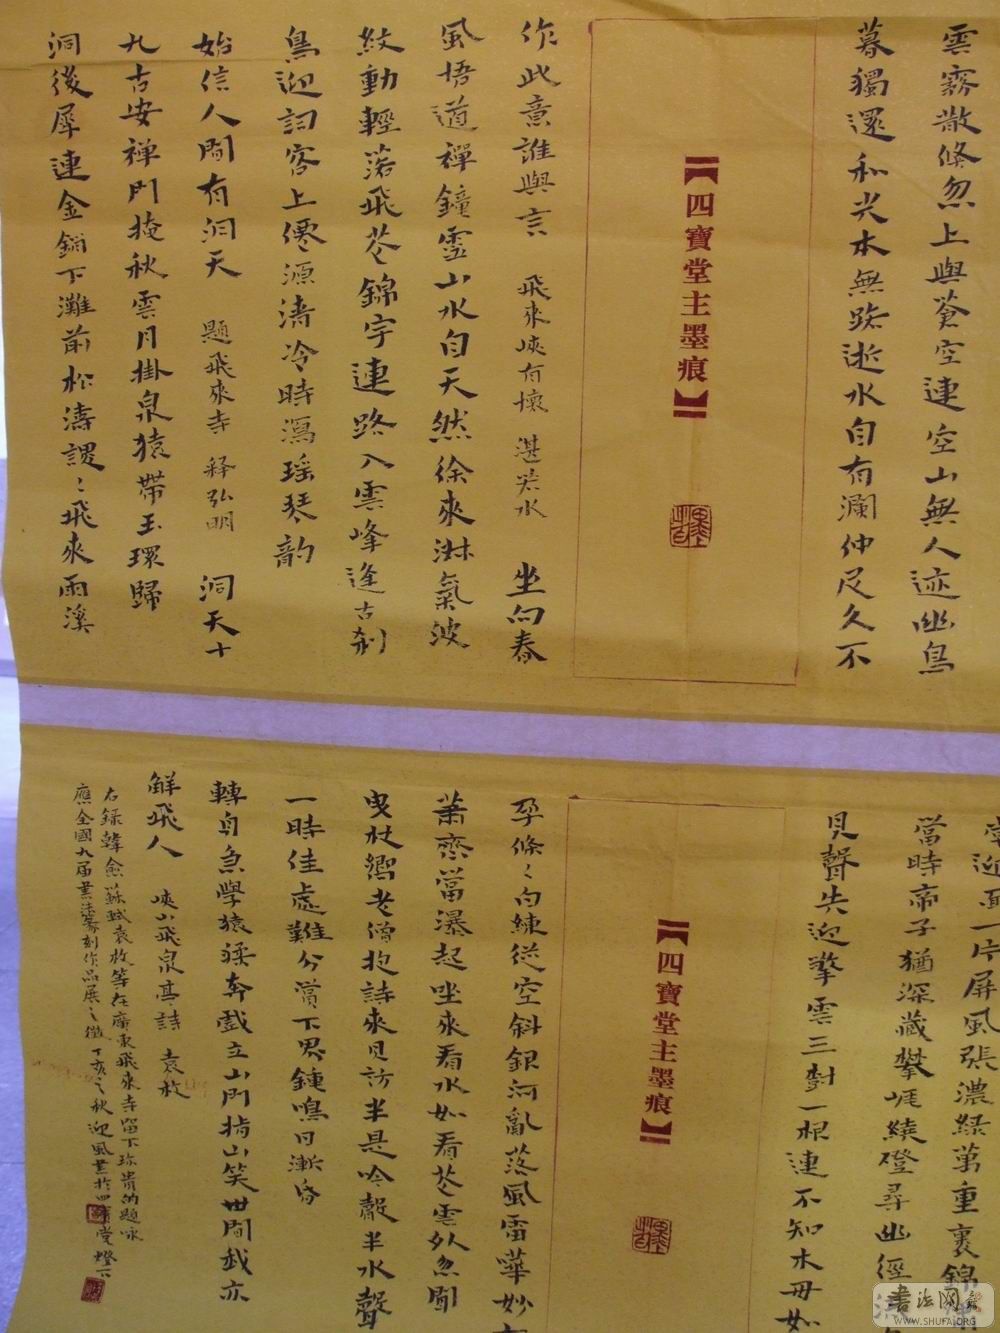 雲霧散倏忽上與蒼空連空山無人迹幽鳥
暮獨還和光本無跡逝水自有瀾仲尼久不
【四寶堂主墨痕】
作此意誰與言 飛來峽有懷 湛若水 坐向春
風悟道禪鐘靈山水自天然徐來淋氣波
紋動輕落飛花錦字連路入雲峰逢古剎
鳥迎詞客上僊源濤冷時瀉瑶琴韵
始信人間有洞天 題飛來寺 释弘明 洞天十
九古安禅門掩秋雲月掛泉猿帶玉環歸
洞後犀連金鎖下灘前松濤謖〻飛來雨溪
掌迎面一片屏風張濃緑萬重裹錦
當時帝子猶深藏攀崕繞磴尋幽徑
見聲先迎拳雲三尌一根連不知木毋如
【四寶堂主墨痕】
孕條〻白練從空斜銀河亂落風雷嘩妙
葉齋當瀑起坐來看水如看花雲外忽聞
曳杖嚮老僧抱詩來見訪半是吟聲半水聲
一時佳處難分賞下界鍾鳴日漸昏
轉身急學猿猱奔戲立山門揹山笑世間我亦
鮮飛人 峽山飛泉亭詩 袁枚
右録韓愈蘇軾袁枚等在廣東飛來寺留下珎貴的題咏
應全國九届書法篆刻作品展之徵丁亥之秋迎風書於四寶堂燈下
书法网
WWW.SHUFA.ORG